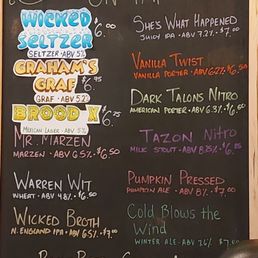 ON TAP
WICKED
SELTZER $6
SELTZER - ABV 5%
GRAHAM'S
GRAF $6.95
GRAF - ABV 5%
BROOD X $6.75
MEXICAN LAGER - ABV 5%
MR. MARZEN
MARZEN - ABV 6.5% $6.50
WARREN WIT
WHEAT - ABV 4.8% $6.50
WICKED BROTH
N. ENGLAND IPA - ABV 6.5% $7.00
SHE'S WHAT HAPPENED
JUICY IPA - ABV 7.2% $7.00
VANILLA TWIST
VANILLA PORTER - ABV 6.2% $6.50
DARK TALONS NITRO
AMERICAN PORTER - ABV 6.3% $6.50
TAZON NITRO
MILK STOUT - ABV 8.25% $6.75
PUMPKIN PRESSED
PUMPKIN ALE - ABV 8% $7.00
COLD BLOWS THE
WIND
WINTER ALE - ABV $7.00